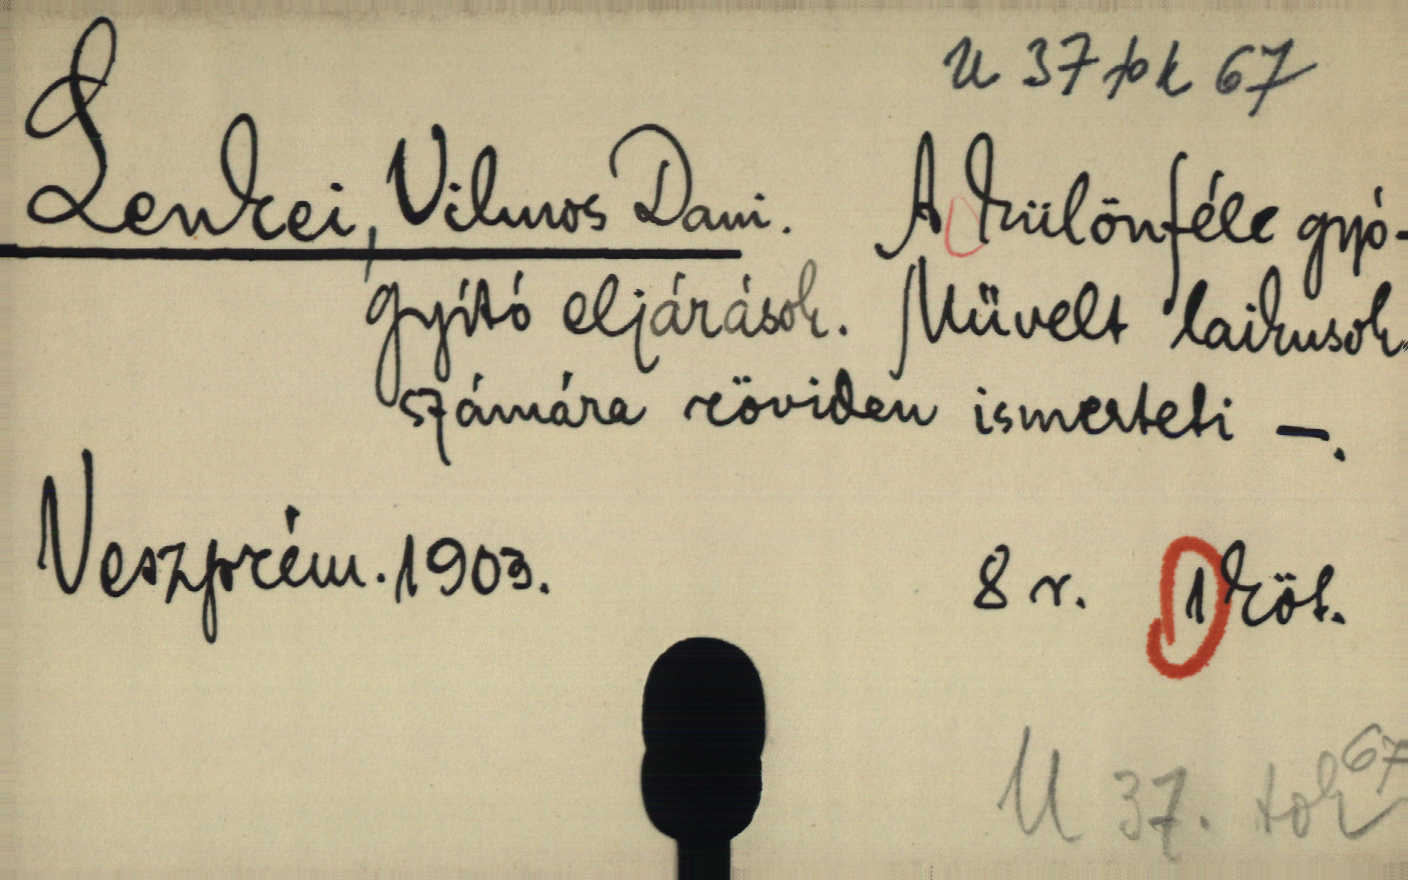 U 37 tok 67
Lenkei, Vilmos Dani. A különféle gyó-
gyító eljárások. Müvelt laikusok
számára röviden ismerteti —.
Veszprém. 1903. 8 r. 1 köt.
U 37. tok 67